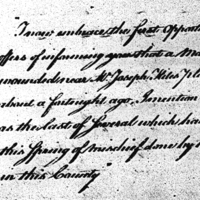 "I now embrace the first Opport
offers of informing you that a Ma
wounded near Mr Joseph
about a fortnight ago, I mention
as the last of Several which ha
this Spring of mischief done by
in this County"